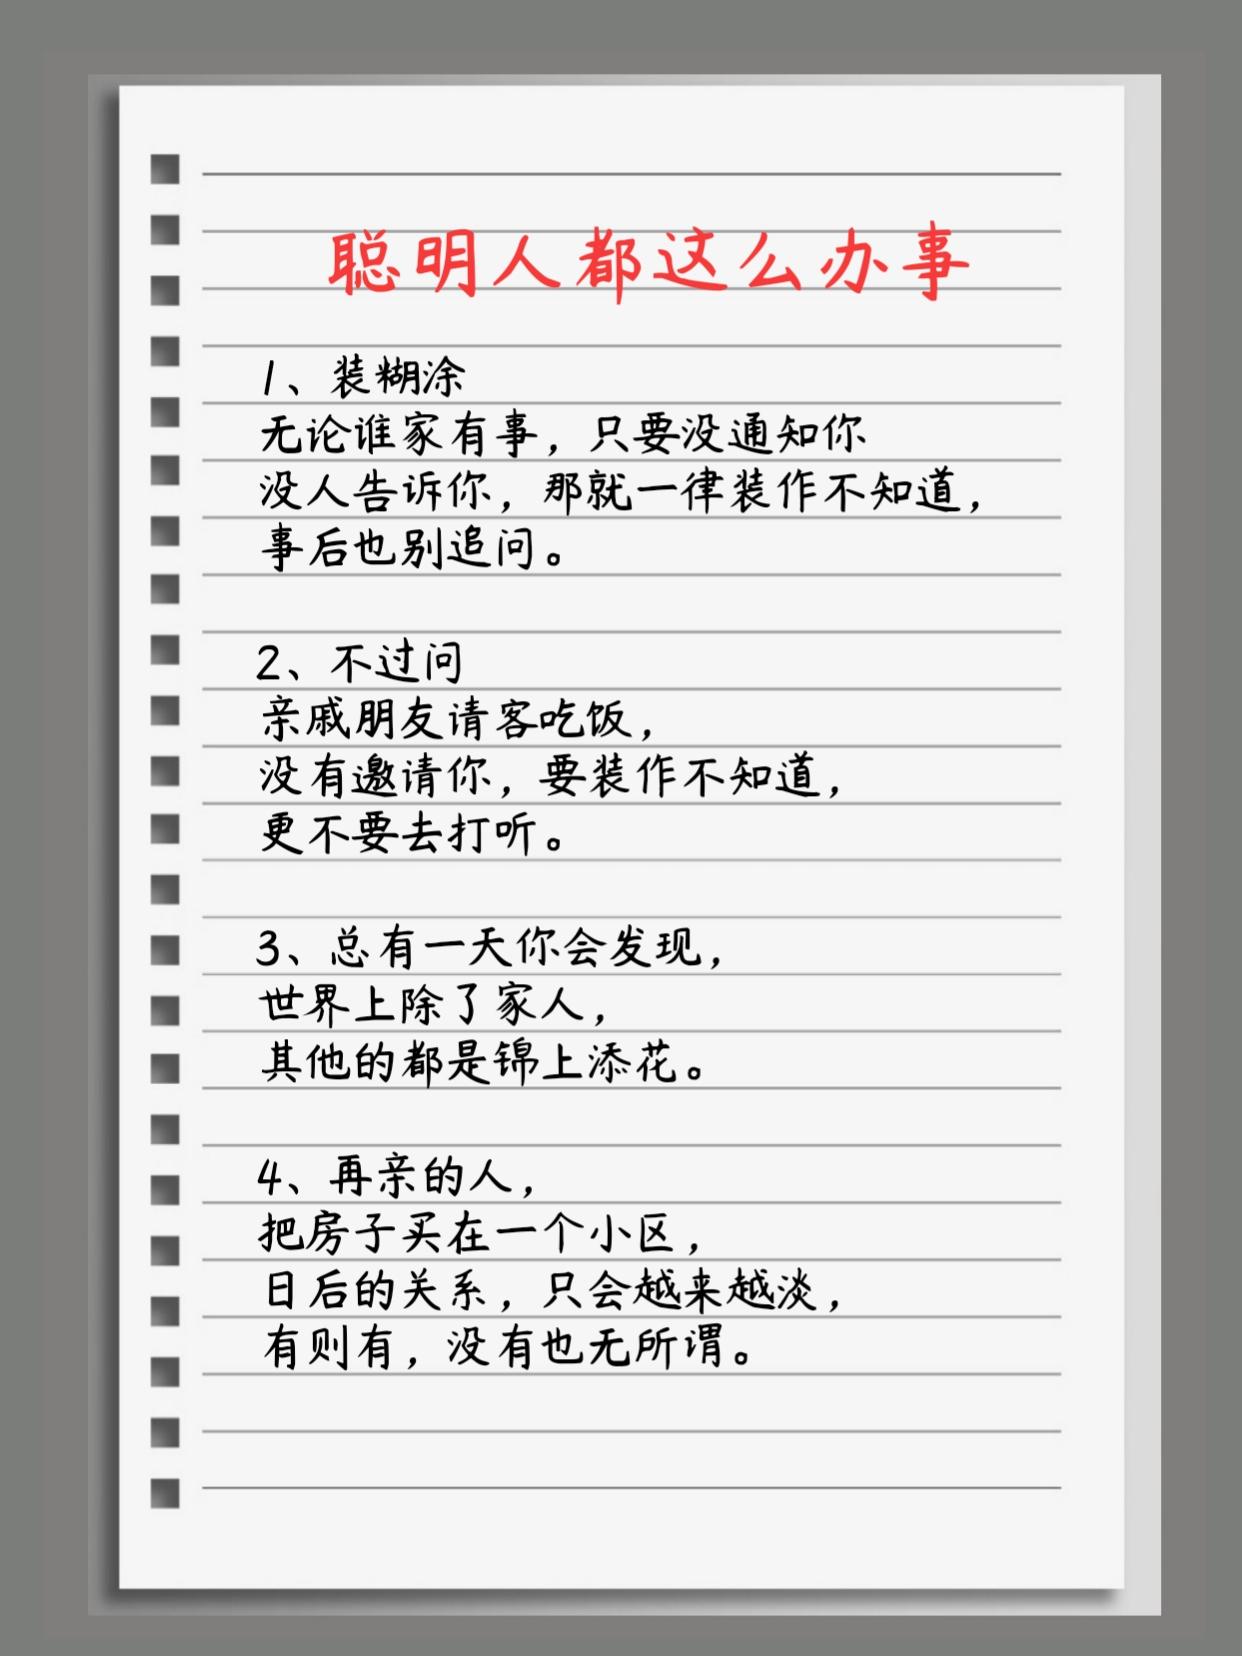 聪明人都这么办事
1、装糊涂
无论谁家有事，只要没通知你
没人告诉你，那就一律装作不知道，
事后也别追问。
2、不过问
亲戚朋友请客吃饭，
没有邀请你，要装作不知道，
更不要去打听。
3、总有一天你会发现，
世界上除了家人，
其他的都是锦上添花。
4、再亲的人，
把房子买在一个小区，
日后的关系，只会越来越淡，
有则有，没有也无所谓。